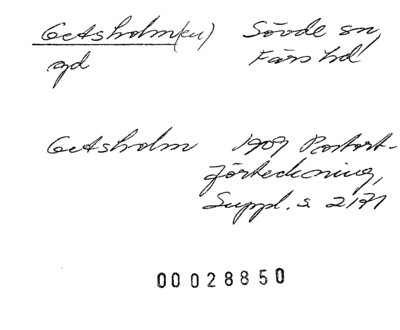 Getsholm(en) Sövde sn,
gd Färs hd
Getsholm 1909 Postort-
förteckning,
Suppl. s. 2171
00028850